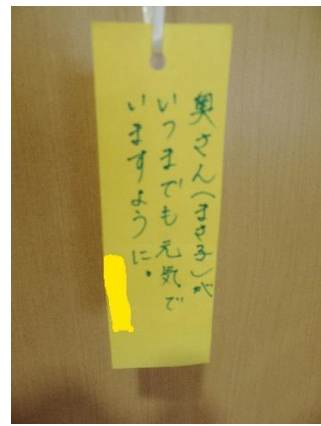 奥さん(まさ子)が
いつまでも元気で
いますように。